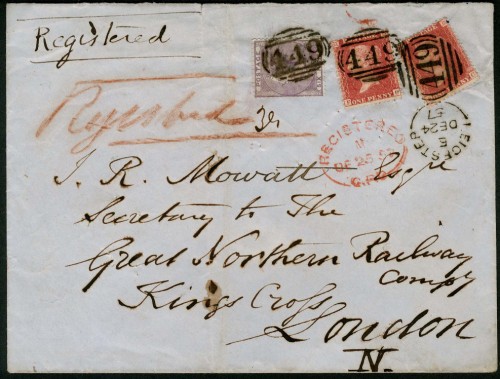 Registered
Registered
POSTAGE
449
449
449
ONE PENNY
REGISTERED
DE 25 57
G.P.O
LEICESTER
E
DE 24
57
J. R. Mowatt Esqre
Secretary to The
Great Northern Railway
Compy
Kings Cross
London
N.